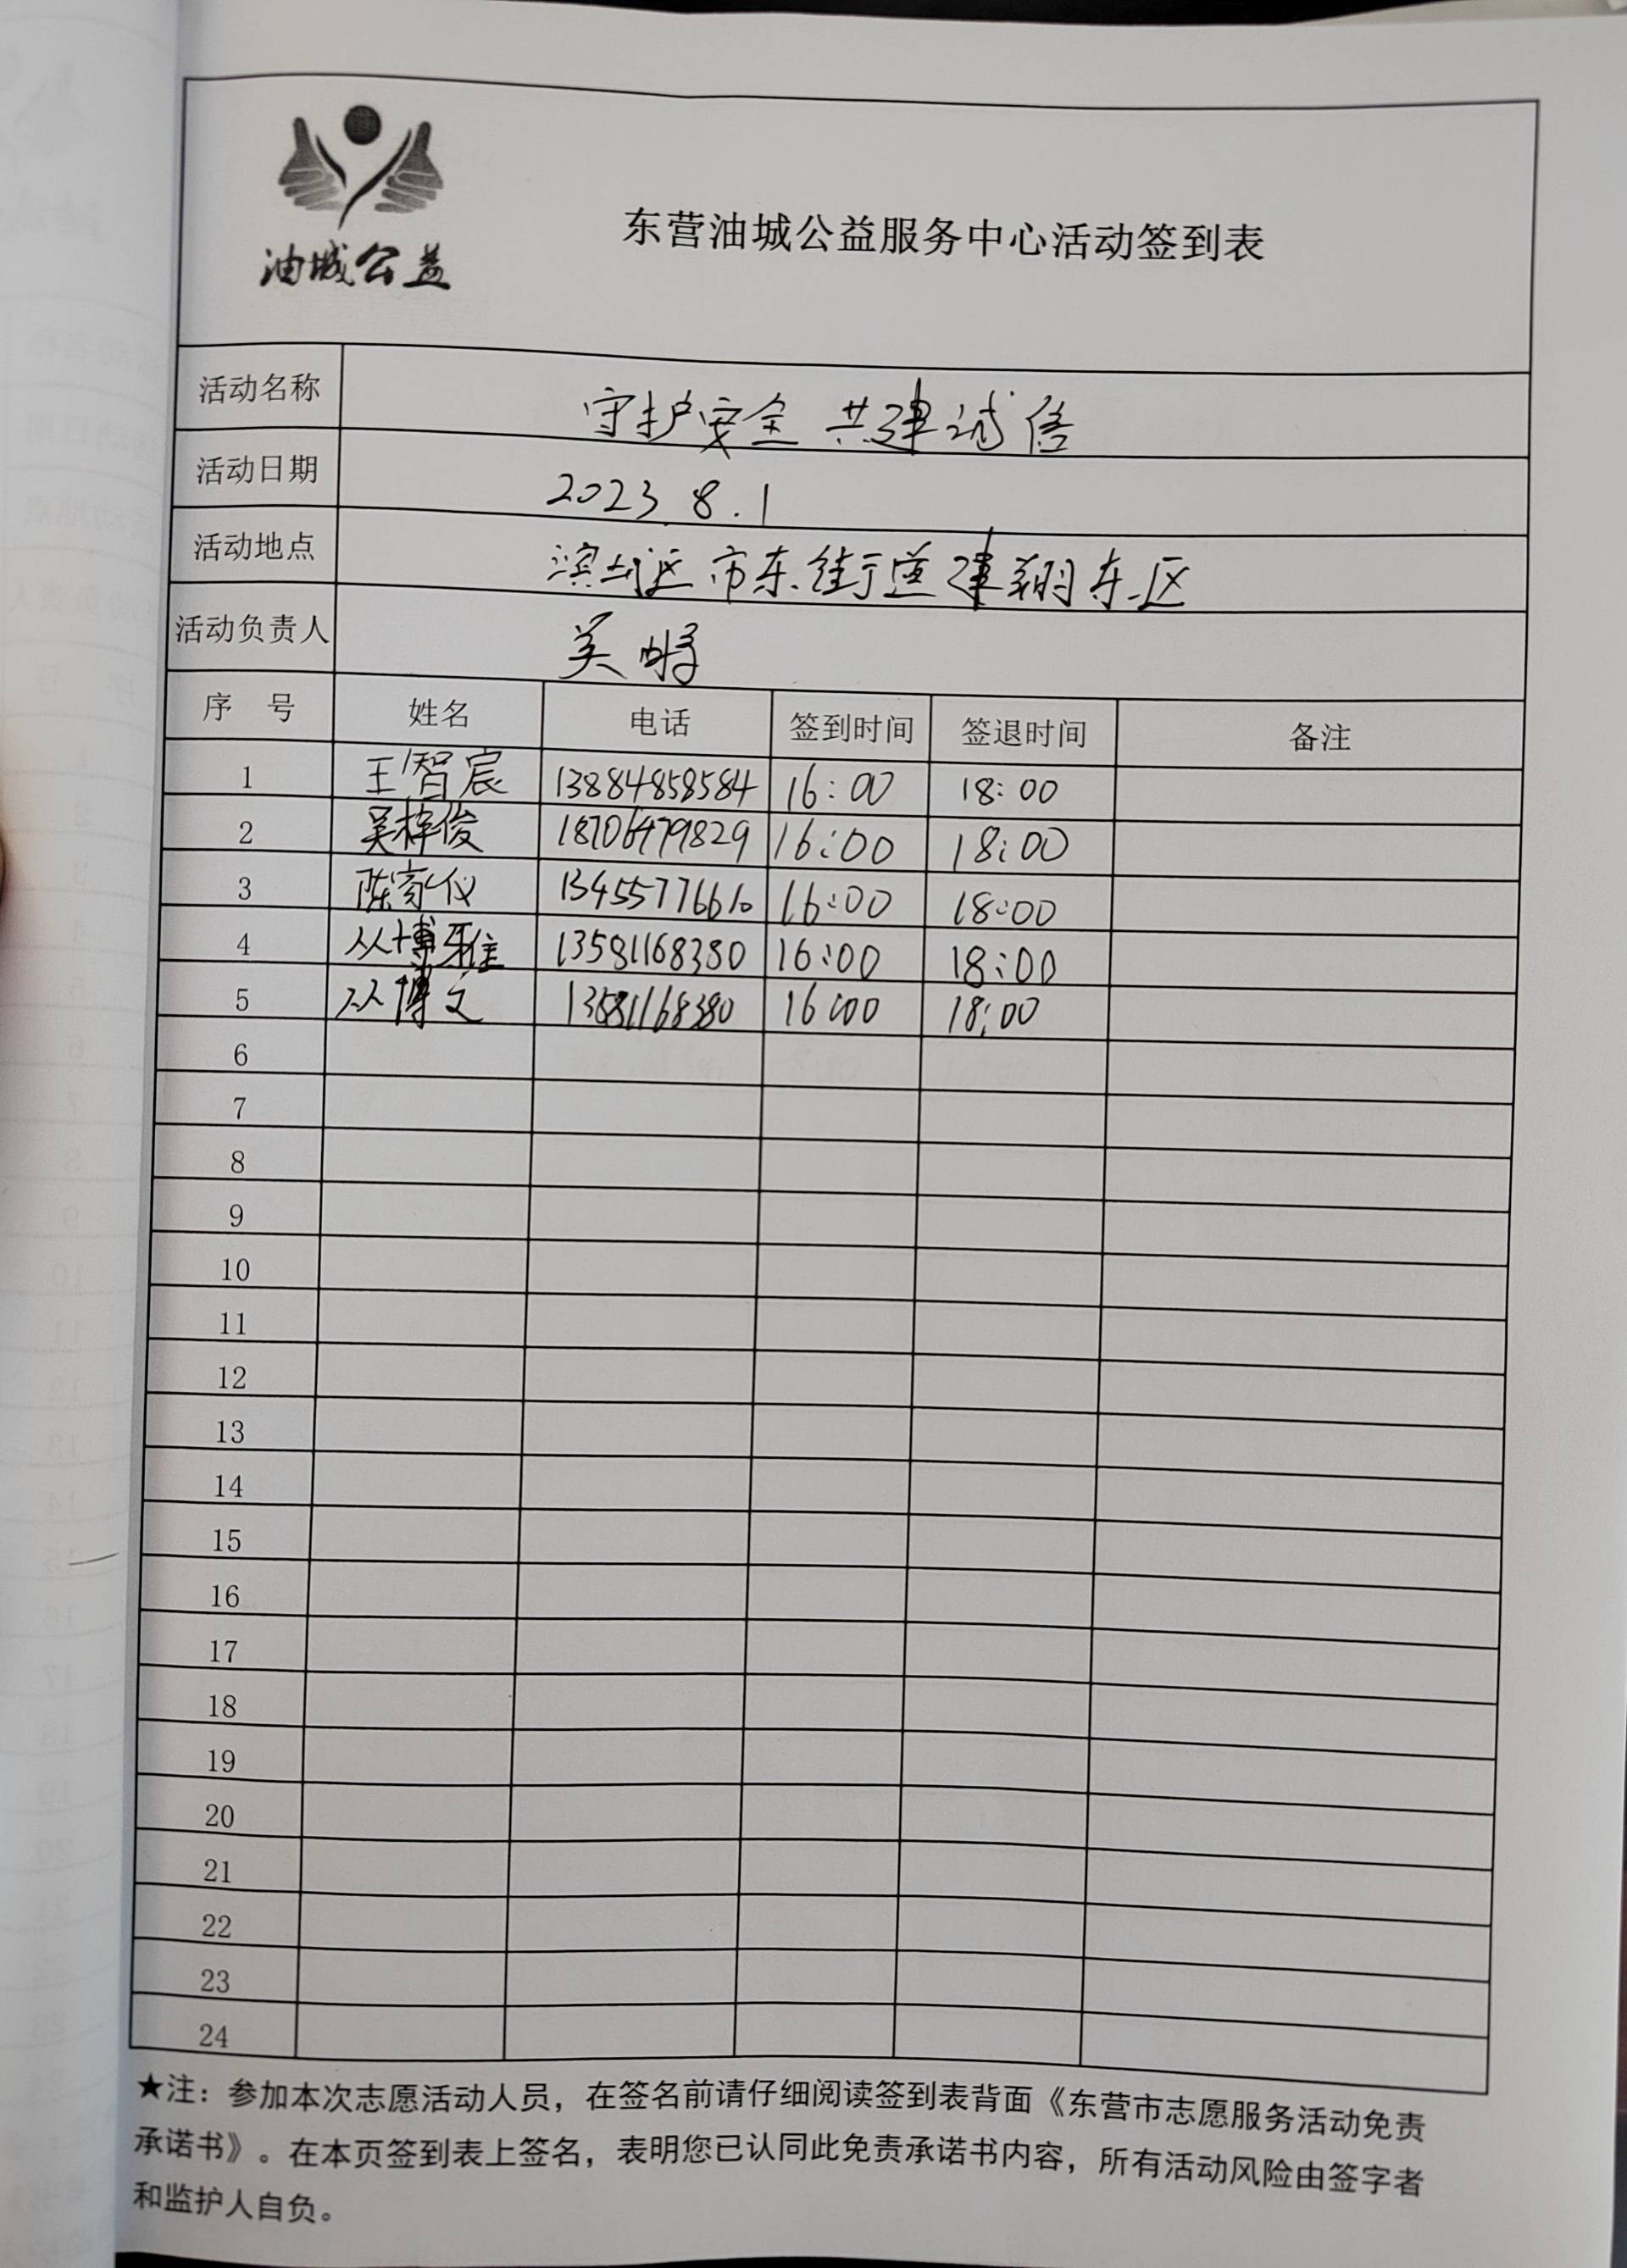 油城公益
东营油城公益服务中心活动签到表
活动名称 守护安全 共建诚信
活动日期 2023.8.1
活动地点 滨城区市东街道建翔东区
活动负责人 吴明
序 号 姓名 电话 签到时间 签退时间 备注
1 王智宸 13884858584 16:00 18:00
2 吴梓俊 18706479829 16:00 18:00
3 陈家仪 13455777661 16:00 18:00
4 从博雅 13581168380 16:00 18:00
5 从博文 13581168380 16:00 18:00
6
7
8
9
10
11
12
13
14
15
16
17
18
19
20
21
22
23
24
★注：参加本次志愿活动人员，在签名前请仔细阅读签到表背面《东营市志愿服务活动免责
承诺书》。在本页签到表上签名，表明您已认同此免责承诺书内容，所有活动风险由签字者
和监护人自负。